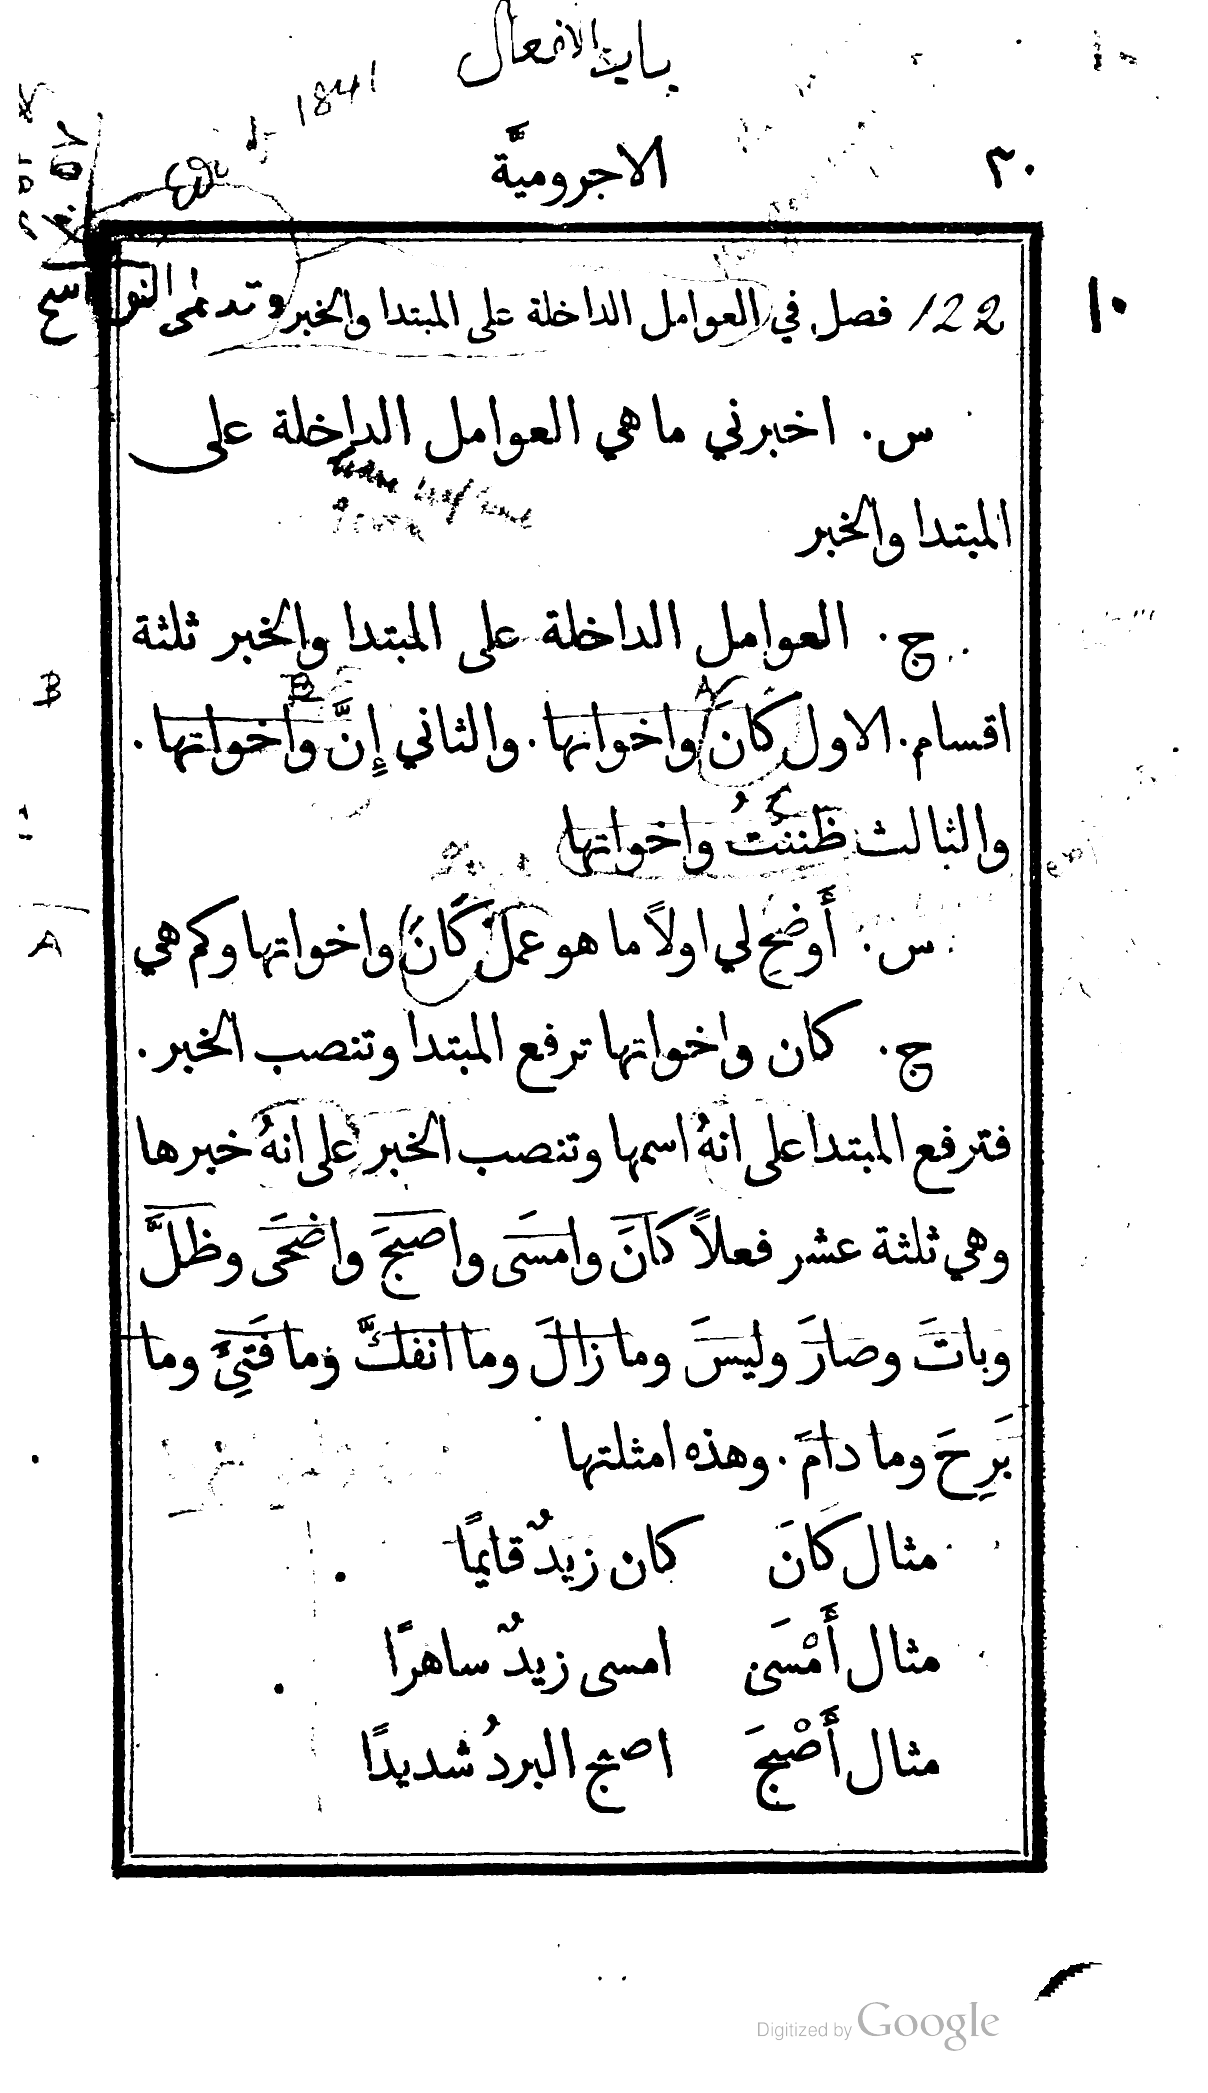 باب الافعال
1841
٣٠ الاجروميَّة
١٠
122 فصل في العوامل الداخلة على المبتدا والخبر وتدعى النواسخ
س. اخبرني ما هي العوامل الداخلة على
المبتدا والخبر
ج. العوامل الداخلة على المبتدا والخبر ثلثة
B
B A
اقسام. الاول كَانَ واخواتها. والثاني إِنَّ واخواتها.
والثالث ظَنَنْتُ واخواتها
س. أَوضِح لي اولاً ما هو عملُ كَانَ واخواتها وكم هي
A
ج. كان واخواتها ترفع المبتدا وتنصب الخبر.
فترفع المبتدا على انهُ اسمها وتنصب الخبر على انهُ خبرها
وهي ثلثة عشر فعلاً كَانَ وامسَى واصبحَ واضحَى وظلَّ
وباتَ وصارَ وليسَ وما زالَ وما انفكَّ وما فَتِئَ وما
بَرِحَ وما دامَ. وهذه امثلتها
مثال كَانَ كان زيدٌ قايمًا
مثال أَمْسَى امسى زيدٌ ساهرًا
مثال أَصْبحَ اصبح البردُ شديدًا
Digitized by Google